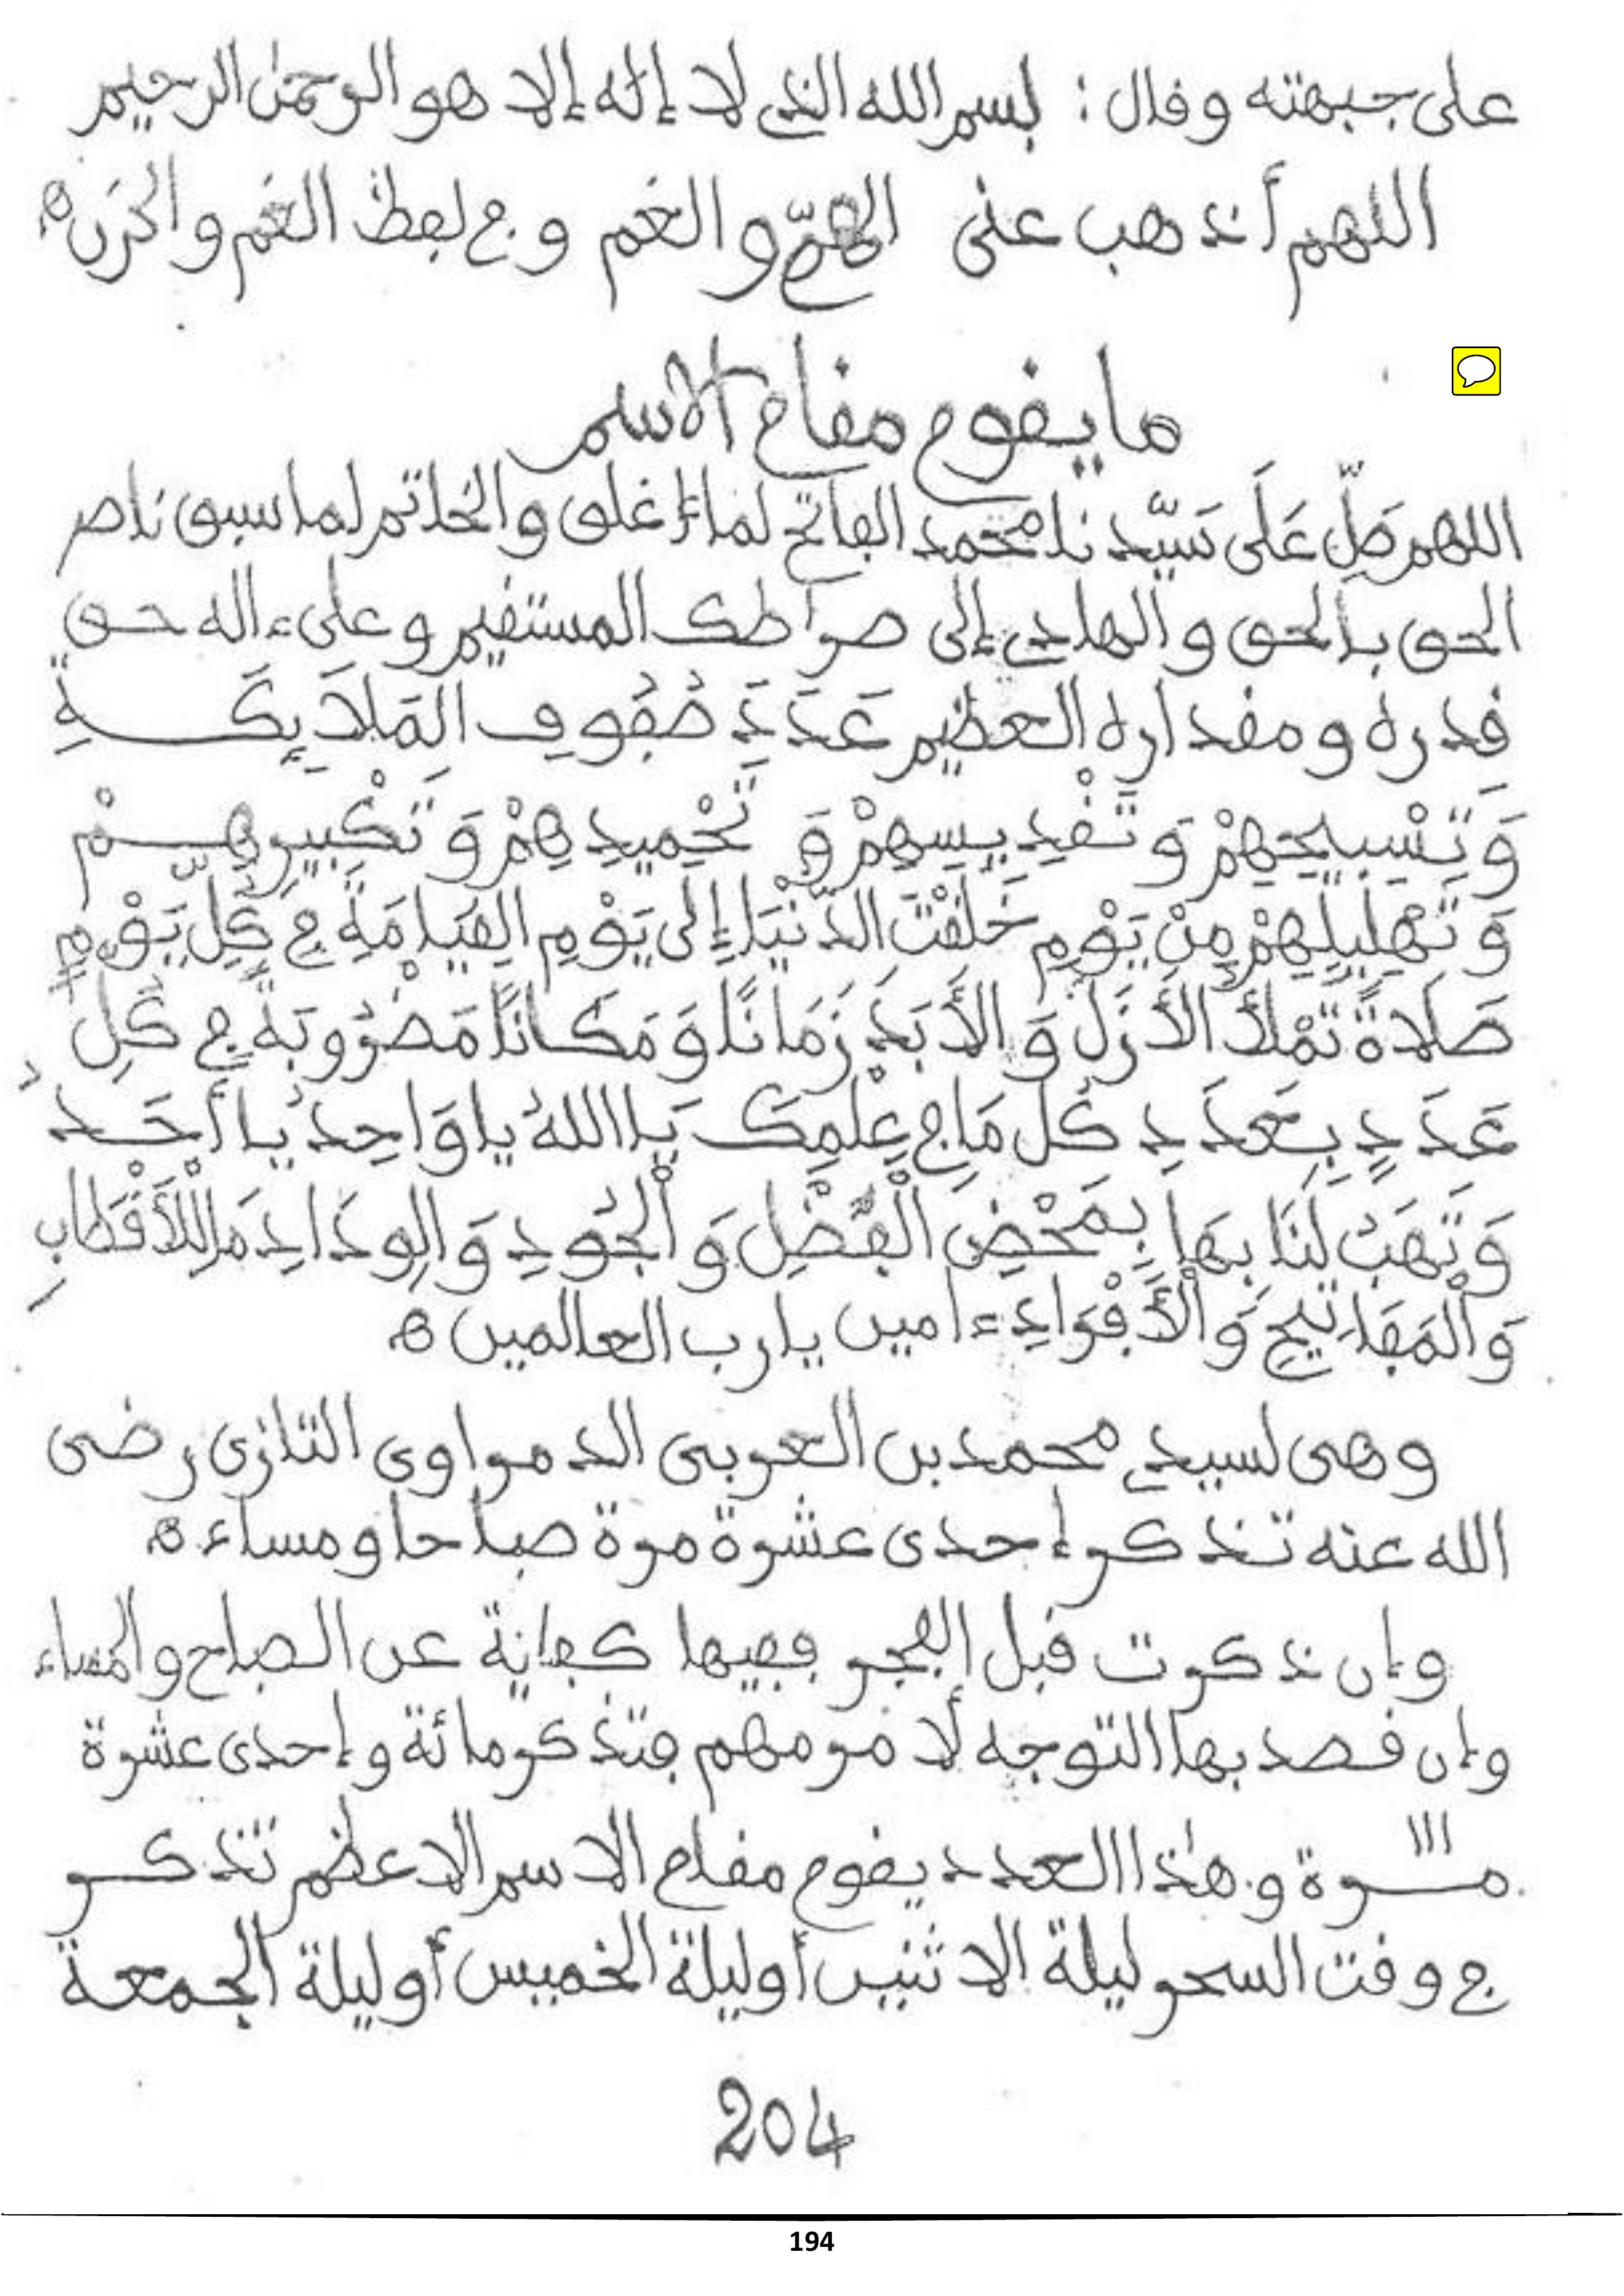 على جبهته وقال : بسم الله الذي لا إله إلا هو الرحمن الرحيم
اللهم أذهب عنى الهمّ والغم وفي لفظ الغم والحزن ه
ما يقوم مقام الاسم
اللهم صَلِّ عَلَى سَيِّدنا محمد الفاتح لما أغلق والخاتم لما سبق ناصر
الحق بالحق والهادي إلى صراطك المستقيم وعلى ءاله حق
قدره ومقداره العظيم عَدَدَ صُفُوفِ المَلاَئِكَةِ
وَتَسْبِيحِهِمْ وَتَقْدِيسِهِمْ وَتَحْمِيدِهِمْ وَتَكْبِيرِهِمْ
وَتَهْلِيلِهِمْ مِنْ يَوْمِ خَلَقْتَ الدُّنْيَا إِلَى يَوْمِ القِيَامَةِ فِي كُلِّ يَوْمٍ
صَلَاةً تَمْلَأُ الأَزَلَ وَالأَبَدَ زَمَانًا وَمَكَانًا مَضْرُوبَةً فِي كُلِّ
عَدَدٍ بِعَدَدِ كُلِّ مَا فِي عِلْمِكَ يَا اللهُ يا وَاحِدُ يا أَحَدُ
وَتَهَبُ لَنَا بِهَا بِمَحْضِ الْفَضْلِ وَالْجُودِ وَالوِدَادِ مَا لِلْأَقْطَابِ
وَالْمَفَاتِيحِ وَالْأَفْرَادِ ءامين يا رب العالمين ه
وهى لسيدي محمد بن العربى الدمراوى التازى رضى
الله عنه تذكر إحدى عشرة مرة صباحا ومساء ه
وإن ذكرت قبل الفجر ففيها كفاية عن الصباح والمساء
وإن قصد بها التوجه لأمر مهم فتذكر مائة وإحدى عشرة
111
مرة وهذا العدد يقوم مقام الاسم الاعظم تذكر
في وقت السحر ليلة الاثنين أو ليلة الخميس أو ليلة الجمعة
204
194